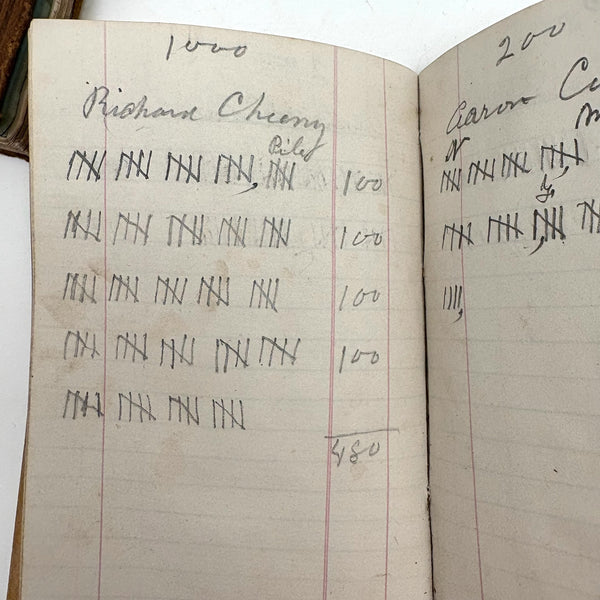 1000
Richard Cheeny
Piles
100
100
100
100
480
200
Aaron Cu
N